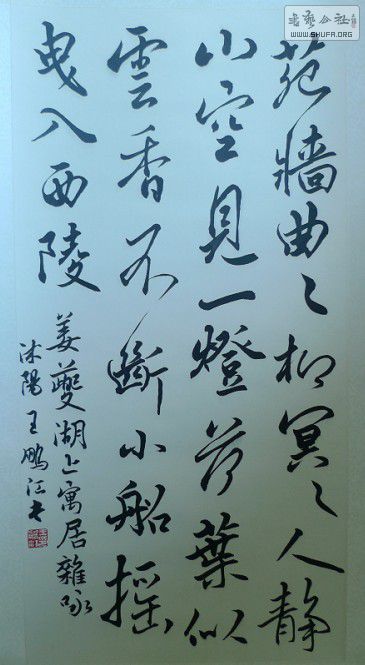 苑牆曲々柳冥々人靜
山空見一燈荷葉似
雲香不斷小船摇
曳入西陵
姜夔湖上寓居雜咏
沭陽王鵬江书
書藝公社
WWW.SHUFA.ORG